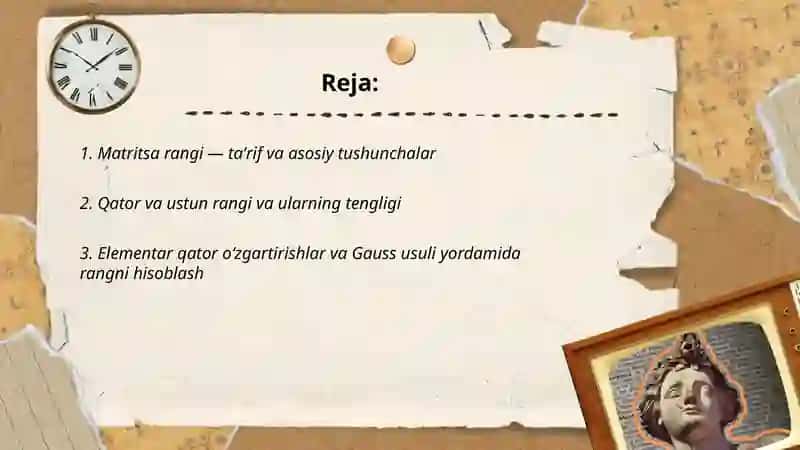 Reja:
1. Matritsa rangi — ta’rif va asosiy tushunchalar
2. Qator va ustun rangi va ularning tengligi
3. Elementar qator o‘zgartirishlar va Gauss usuli yordamida
rangni hisoblash